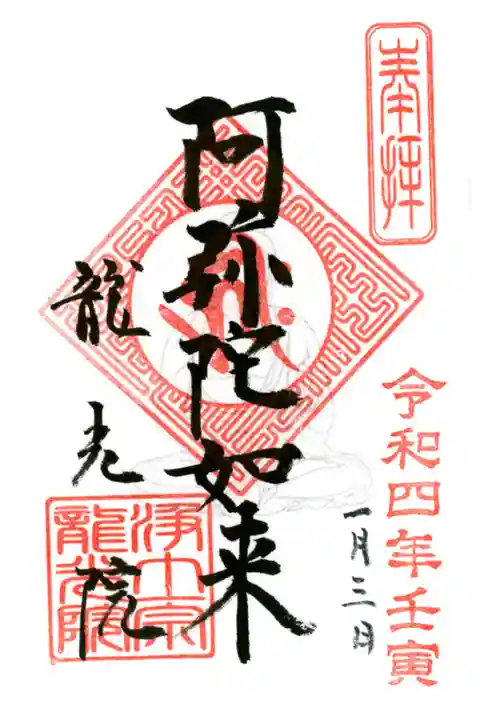 奉拝
令和四年壬寅
一月三日
阿弥陀如来
龍光院
浄土宗
龍光院